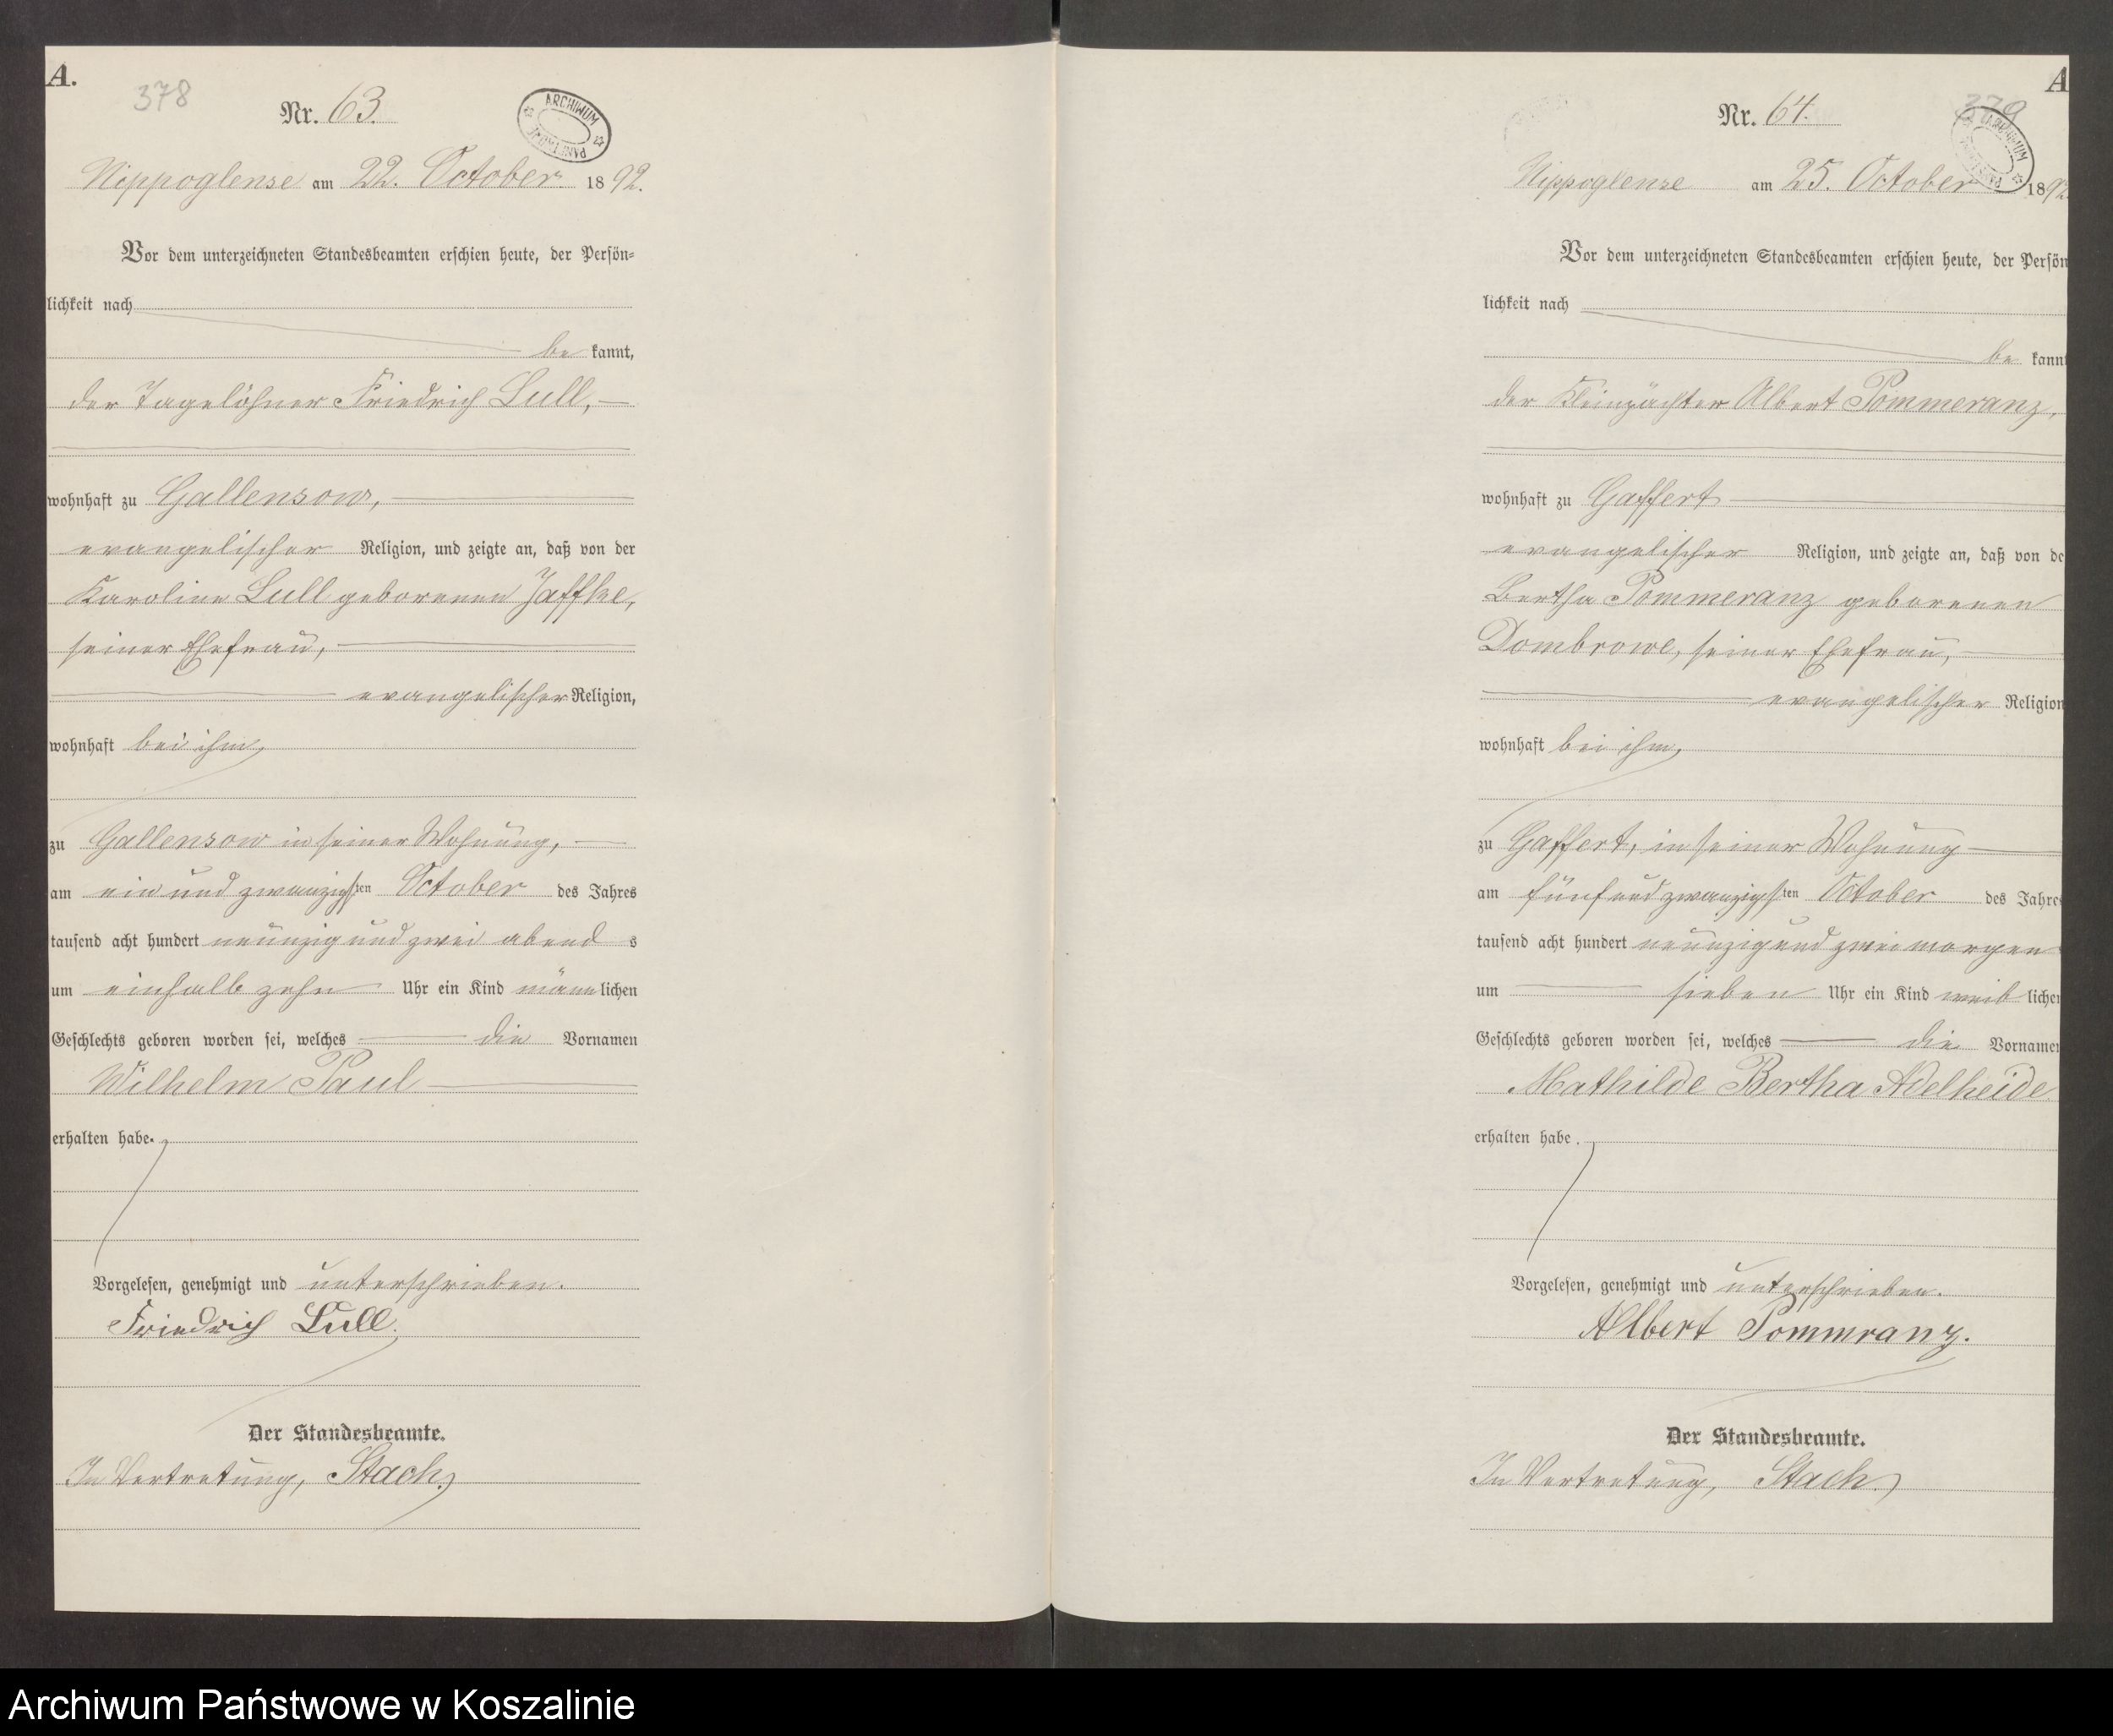 A.
378
Nr. 63.
ARCHIWUM
PAŃSTWOWE
Nippoglense am 22. October 1892.
Vor dem unterzeichneten Standesbeamten erschien heute, der Persön-
lichkeit nach
be kannt,
der Tagelöhner Friedrich Lull,
wohnhaft zu Gallensow,
evangelischer Religion, und zeigte an, daß von der
Karoline Lull geborenen Jaffke,
seiner Ehefrau,
evangelischer Religion,
wohnhaft bei ihm,
zu Gallensow in seiner Wohnung,
am ein und zwanzigsten October des Jahres
tausend acht hundert neunzig und zwei abend s
um einhalb zehn Uhr ein Kind männlichen
Geschlechts geboren worden sei, welches die Vornamen
Wilhelm Paul
erhalten habe.
Vorgelesen, genehmigt und unterschrieben.
Friedrich Lull.
Der Standesbeamte.
In Vertretung, Stach.
A
379
Nr. 64.
ARCHIWUM
Nippoglense am 25. October 1892
Vor dem unterzeichneten Standesbeamten erschien heute, der Persön
lichkeit nach
be kannt
der Kleinpächter Albert Pommeranz,
wohnhaft zu Gaffert
evangelischer Religion, und zeigte an, daß von de
Bertha Pommeranz geborenen
Dombrowe, seiner Ehefrau,
evangelischer Religion
wohnhaft bei ihm,
zu Gaffert, in seiner Wohnung
am fünf und zwanzigsten October des Jahres
tausend acht hundert neunzig und zwei morgen
um sieben Uhr ein Kind weib lichen
Geschlechts geboren worden sei, welches die Vornamen
Mathilde Bertha Adelheide
erhalten habe.
Vorgelesen, genehmigt und unterschrieben.
Albert Pommranz.
Der Standesbeamte.
In Vertretung, Stach.
Archiwum Państwowe w Koszalinie